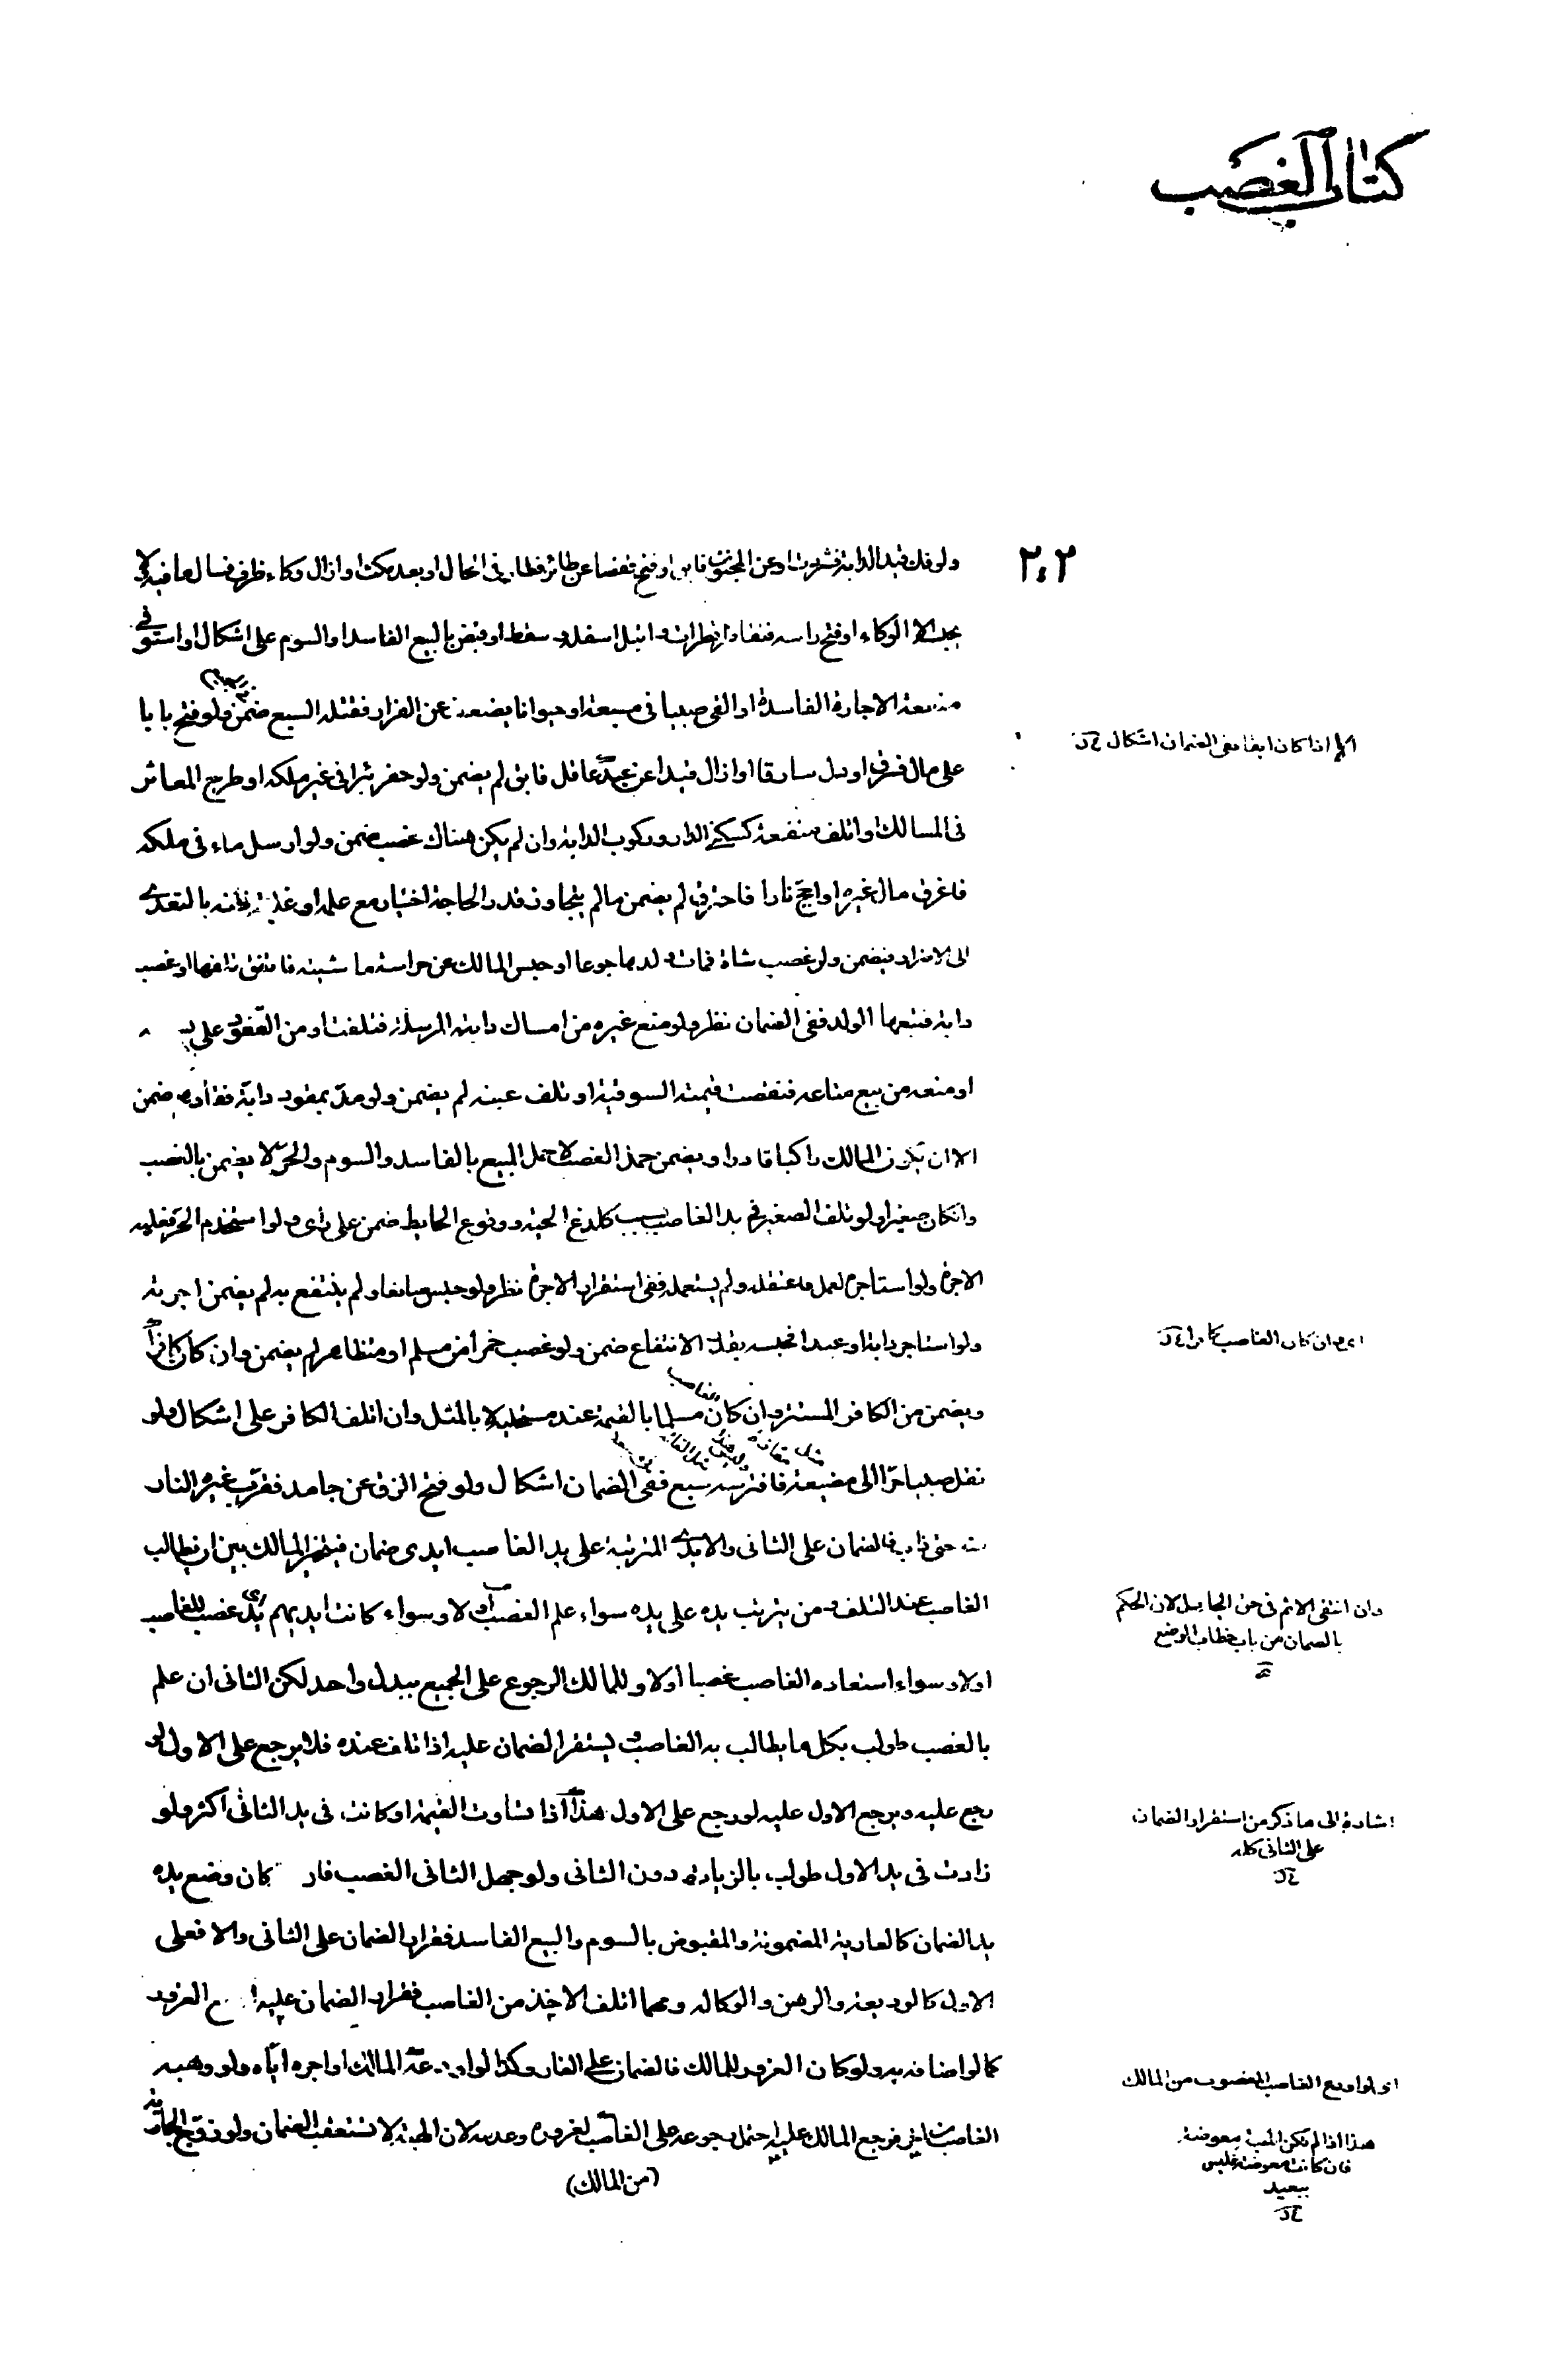 كتاب الغصب
٢٠٢
ولو فك قيد الدابة فشردت او عن المجنون فابق او فتح قفصا عن طائر فطار في الحال او بعد مكث او ازال وكاء ظرف فسال ما فيه لا
يحبسه الا الوكاء او فتح راسه فتقاطر قطرات وابتل اسفله وسقط او قبض بالبيع الفاسد او السوم على اشكال او استوفى
منفعة الاجارة الفاسدة او القى صبيا في مسبعة او حيوانا يضعف عن الفرار فقتله السبع ضمن ولو فتح بابا
على مال فسرق او دل سارقا او ازال قيدا عن عبد عاقل فابق لم يضمن ولو حفر بئرا في غير ملكه او طرح المعاثر
في المسالك او اتلف منفعة كسكنى الدار وركوب الدابة وان لم يكن هناك غصب ضمن ولو ارسل ماء في ملكه
فاغرق مال غيره او اجج نارا فاحترق لم يضمن ما لم يتجاوز قدر الحاجة اختيارا مع علمه او غلبة ظنه بالتعدي
الى الاضرار فيضمن ولو غصب شاة فمات ولدها جوعا او حبس المالك عن حراسة ماشيته فاتفق تلفها او غصب
دابة فتبعها الولد ففي الضمان نظر ولو منع غيره من امساك دابته المرسلة فتلفت او من القعود على
او منعه من بيع متاعه فنقصت قيمته السوقية او تلف عينه لم يضمن ولو مد بمقود دابة فقادها ضمن
الا ان يكون المالك راكبا قادرا ويضمن حمل الغصب لا حمل المبيع بالفاسد والسوم والحر لا يضمن بالغصب
وان كان صغيرا ولو تلف الصغير في يد الغاصب بسبب كلدغ الحية ووقوع الحايط ضمن على رأي ولو استخدم الحر فعليه
الاجرة ولو استاجره لعمل فاعتقله ولم يستعمله ففي استقرار الاجرة نظر ولو حبس صانعا ولم ينتفع به لم يضمن اجرته
ولو استاجر دابة او عبدا فحبسه بقدر الانتفاع ضمن ولو غصب خمرا من مسلم او متظاهر لم يضمن وان كان كافرا
ويضمن من الكافر المستتر وان كان مسلما بالقيمة عند مستحليه لا بالمثل وان اتلف الكافر على اشكال ولو
نقل صبيا حرا الى مضيعة فافترسه سبع ففي الضمان اشكال ولو فتح الزق عن جامد فقرب غيره النار
منه حتى ذاب فالضمان على الثاني والايدي المترتبة على يد الغاصب ايدي ضمان فيتخير المالك بين ان يطالب
الغاصب عند التلف ومن يترتب يده على يده سواء علم الغصب او لا وسواء كانت ايديهم يد غصب للغاصب
او لا وسواء استعاده الغاصب غصبا او لا وللمالك الرجوع على الجميع ببدل واحد لكن الثاني ان علم
بالغصب طولب بكل ما يطالب به الغاصب ويستقر الضمان عليه اذا تلف عنده فلا يرجع على الاول لو
رجع عليه ويرجع الاول عليه لو رجع على الاول هذا اذا تساوت القيمة او كانت في يد الثاني اكثر ولو
زادت في يد الاول طولب بالزيادة دون الثاني ولو جهل الثاني الغصب فان كان وضع يده
يد الضمان كالعارية المضمونة والمقبوض بالسوم والبيع الفاسد فقرار الضمان على الثاني والا فعلى
الاول كالوديعة والرهن والوكالة ومهما اتلف الاخذ من الغاصب فقرار الضمان عليه الا مع الغرور
كما لو اضافه به ولو كان الغرور للمالك فالضمان على الغار وكذا لو اودعه المالك او اجره اياه ولو وهبه
الغاصب من اخر فرجع المالك عليه احتمل رجوعه على الغاصب لغروره وعدمه لان الهبة لا تستعقب الضمان ولو زوج الجارية
(من المالك)
اما اذا كان ابقا ففي الضمان اشكال
اي وان كان الغاصب كافرا
وان انتفى الاثم في حق الجاهل لان الحكم
بالضمان من باب خطاب الوضع
اشارة الى ما ذكر من استقرار الضمان
على الثاني كله
اي لو اودع الغاصب المغصوب من المالك
هذا اذا لم يكن الهبة معوضة
فان كانت معوضة فليس
ببعيد